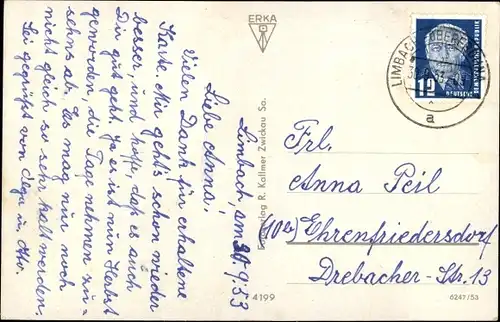 Limbach, am 30.9.53
Liebe Anna!
Vielen Dank für erhaltene
Karte. Mir geht's schon wieder
besser, und hoffe, daß es auch
Dir gut geht. Ja es ist nun Herbst
geworden, die Tage nehmen zu-
sehns ab. Es mag nur noch
nicht gleich so sehr kalt werden.
Sei gegrüßt von
ERKA
R. Kallmer Zwickau Sa.
4199
LIMBACH-OBERFROHNA
a
12
DEUTSCHE
Frl.
Anna Peil
(10a) Ehrenfriedersdorf
Drebacher-Str. 13
6247/53